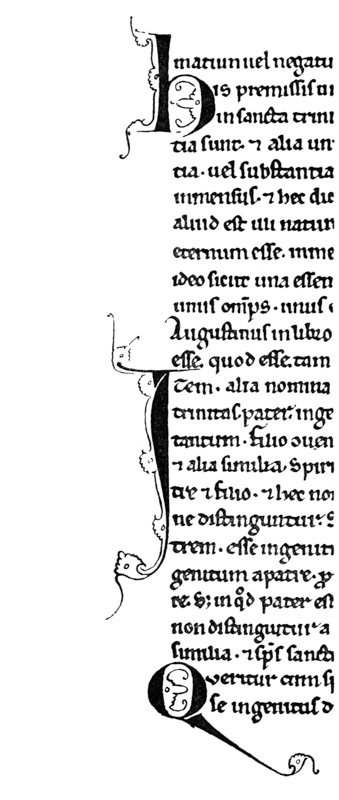 matiuu uel negatu
His premissis ui
in sancta trini
tia sunt. ⁊ alia un
tia. uel substantia
inmensus. ⁊ hec diu
aliud est illi natur
eternum esse. inme
ideo sicut una essen
unus omp̄s. unus
Augustinus in libro
esse. quod esse. tam
Item. alia nomina
trinitas. pater. inge
tantum. filio conuen
⁊ alia similia. Spiri
tre ⁊ filio. ⁊ hec no
ne distinguntur. S
trem. esse ingenit
genitum a patre. ꝓ
re. Sꝫ in qͦd pater est
non distinguitur a
similia. ⁊ sp̄s sancti
Queritur cum sp
se ingenitus d